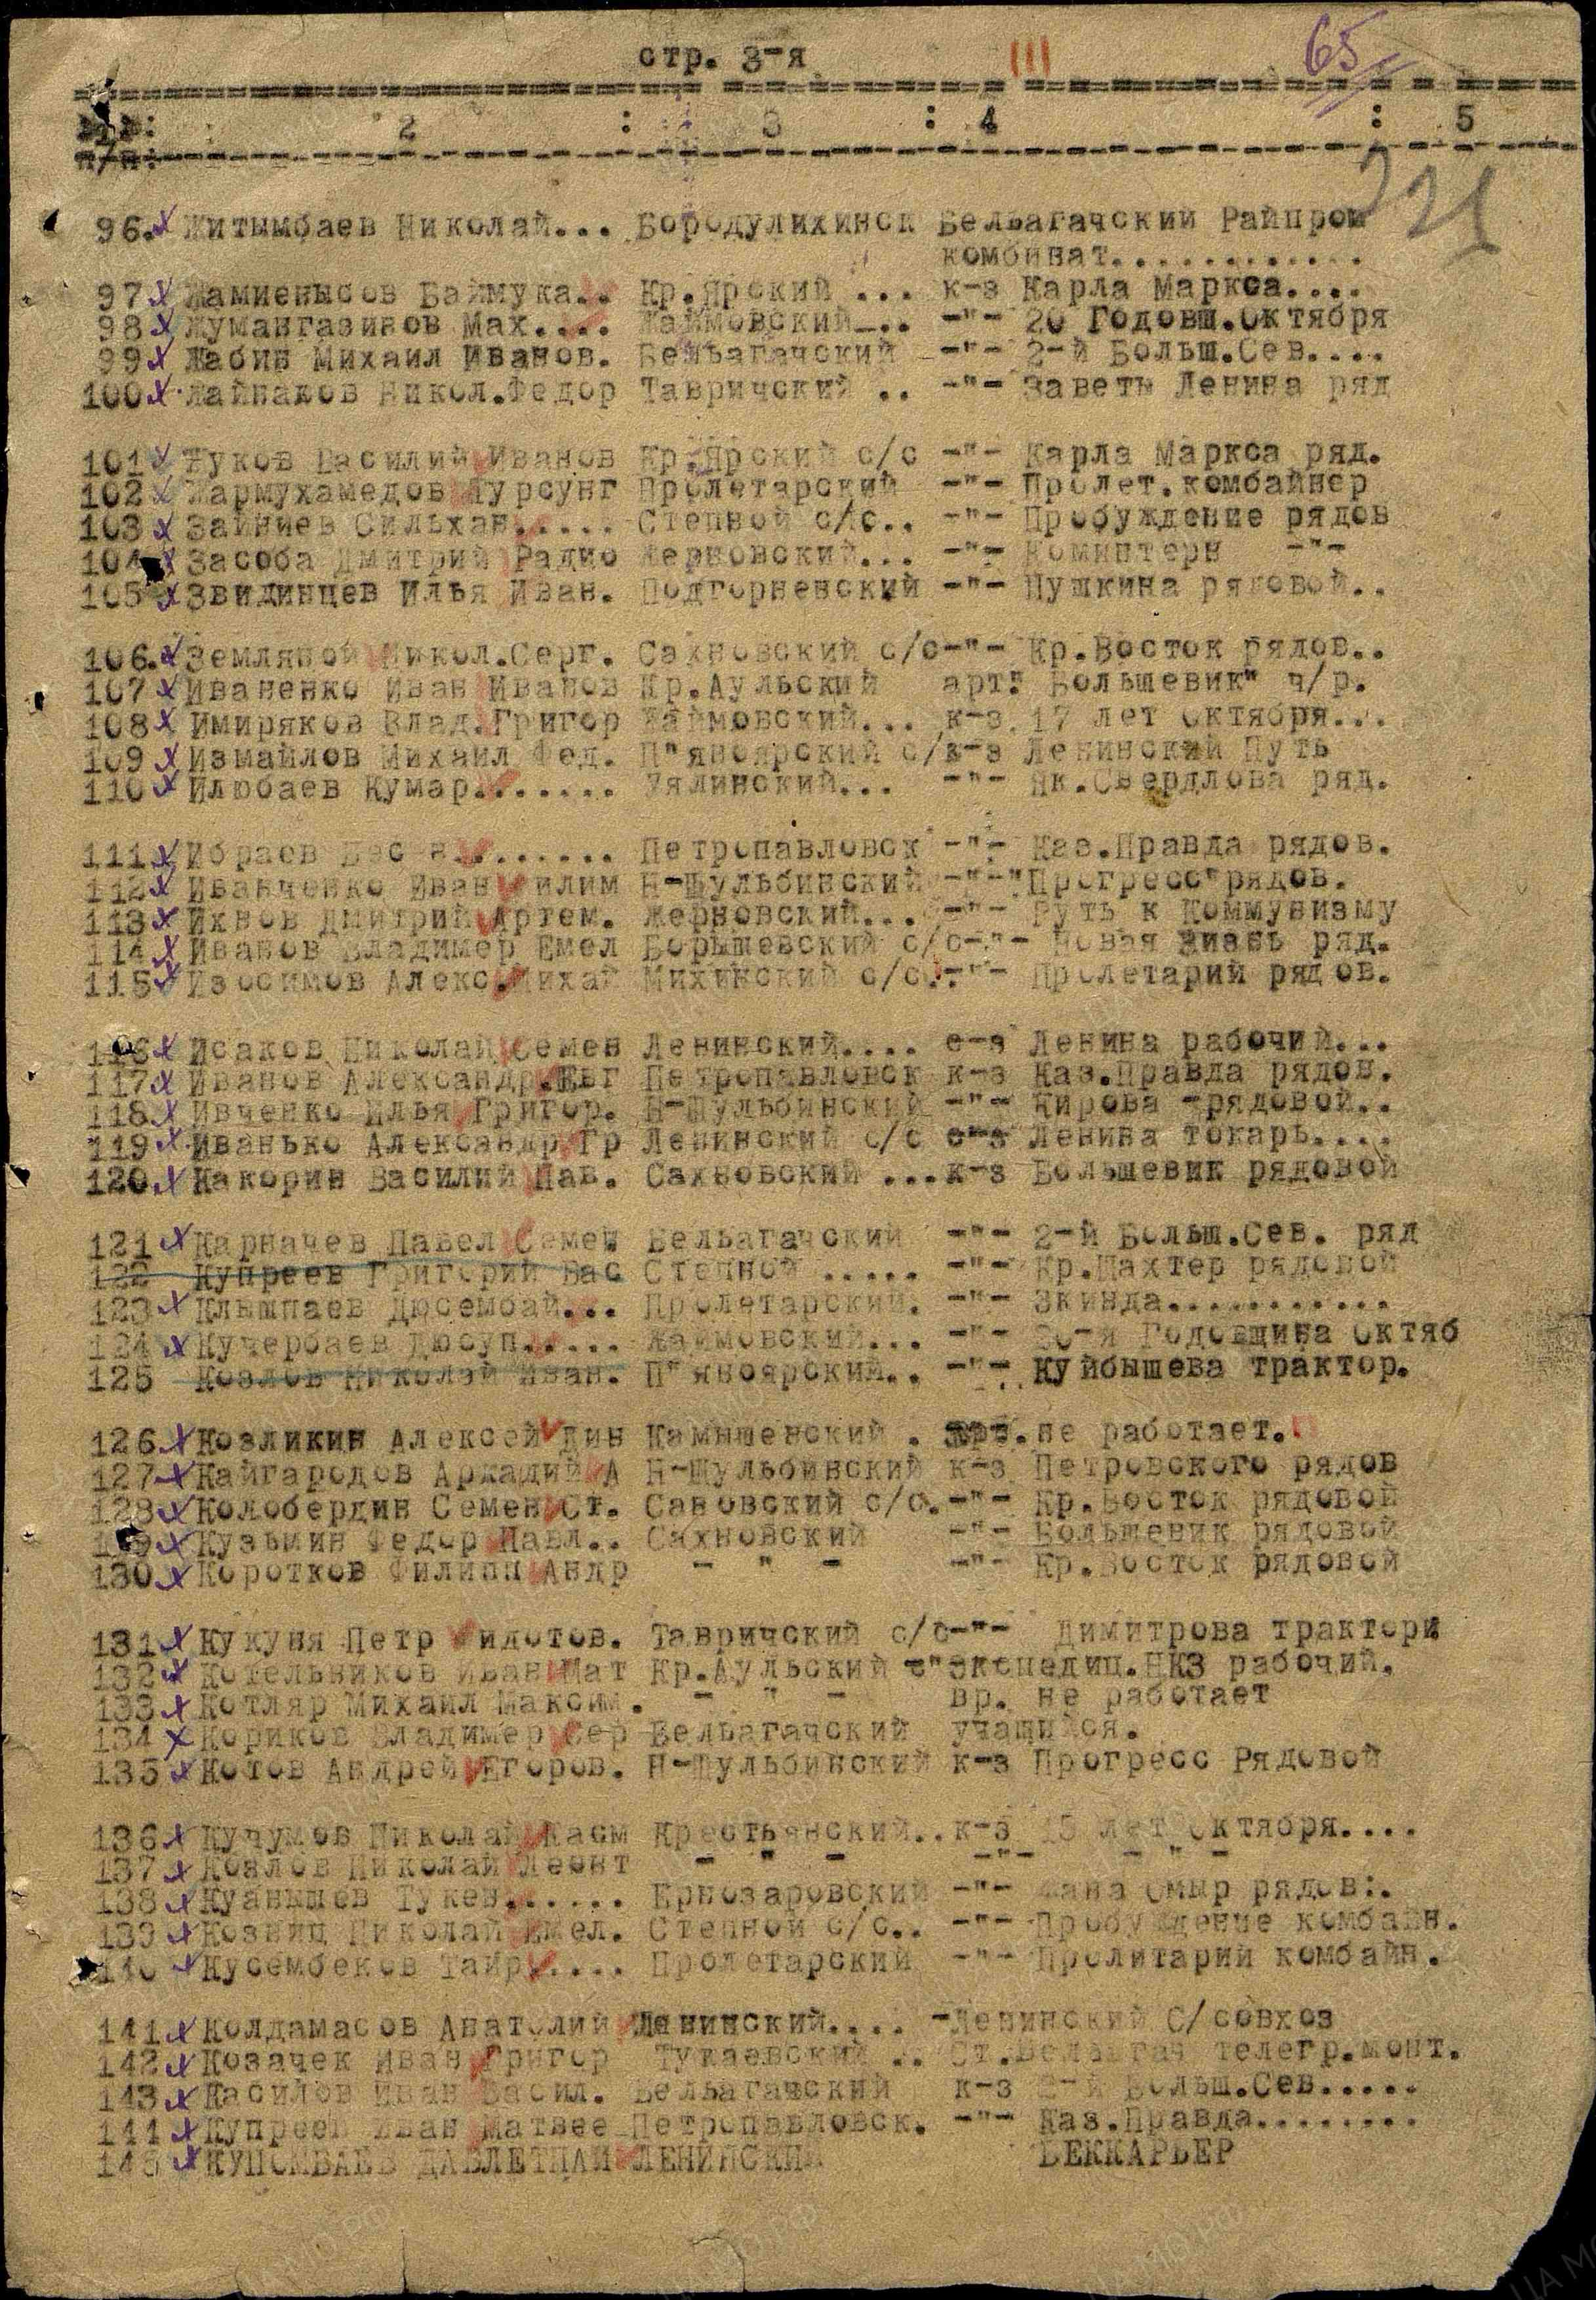 стр. 3-я III 65
№№: 2 : 3 : 4 : 5
п/п:
221
96. х Житымбаев Николай... Бородулихинск Бельагачский Райпром
комбинат............
97 х Жамиенысов Баймука.. Кр.Ярский ... к-з Карла Маркса....
98 х Жумангазинов Мах.... Жаймовский... -"- 20 Годовш.Октября
99 х Жабин Михаил Иванов. Бельагачский -"- 2-й Больш.Сев....
100 х Никол.Федор Тавричский .. -"- Заветы Ленина ряд
101 х Василий Иванов Кр.Ярский с/с -"- Карла Маркса ряд.
102 х Жармухамедов Турсунг Пролетарский -"- Пролет.комбайнер
103 х Зайниев Сильхан..... Степной с/с.. -"- Пробуждение рядов
104 х Засоба Дмитрий Радио Жерновский... -"- Коминтерн -"-
105 х Звидинцев Илья Иван. Подгорненский -"- Пушкина рядовой..
106. х Земляной Никол.Серг. Сахновский с/с-"- Кр.Восток рядов..
107 х Иваненко Иван Иванов Кр.Аульский арт." Большевик" ч/р.
108 х Имиряков Влад.Григор Жаймовский... к-з 17 лет Октября...
109 х Измайлов Михаил Фед. П"яноярский с/к-з Ленинский Путь
110 х Илюбаев Кумар....... Уялинский... -"- Як.Свердлова ряд.
111 х Ибраев Петропавловск -"- Каз.Правда рядов.
112 х Иванченко Иван Филим Н-Шульбинский -"-"Прогресс"рядов.
113 х Ихнов Дмитрий Артем. Жерновский... -"- Путь к Коммунизму
114 х Иванов Владимер Емел Борышевский с/с-"- Новая Жизнь ряд.
115 х Изосимов Алекс.Михай Михинский с/с..-"- Пролетарий рядов.
116 х Исаков Николай Семен Ленинский.... с-з Ленина рабочий...
117 х Иванов Александр.Евг Петропавловск к-з Каз.Правда рядов.
118 х Ивченко Илья Григор. Н-Шульбинский -"- Кирова -рядовой..
119 х Иванько Александр Гр Ленинский с/с с-з Ленина токарь....
120. х Накорин Василий Пав. Сахновский ...к-з Большевик рядовой
121 х Карначев Павел Семен Бельагачский -"- 2-й Больш.Сев. ряд
122 Купреев Григорий Вас Степной ..... -"- Кр.Пахтер рядовой
123 х Клышпаев Дюсембай... Пролетарский. -"- Экинда...........
124 х Кучербаев Дюсуп..... Жаймовский... -"- 20-я Годовщина Октяб
125 Козлов Николай Иван. П"яноярский.. -"- Куйбышева трактор.
126 х Козликин Алексей Дин Камышенский . не работает.
127 х Кайгародов Аркадий А Н-Шульбинский к-з Петровского рядов
128 х Колобердин Семен Ст. Сановский с/с.-"- Кр.Восток рядовой
129 х Кузьмин Федор Павл.. Сахновский -"- Большевик рядовой
130 х Коротков Филипп Андр - " - -"- Кр.Восток рядовой
131 х Кукуня Петр Филотов. Тавричский с/с-"- Димитрова трактори
132 х Котельников Иван Мат Кр.Аульский с"экспедиц.НКЗ рабочий.
133 х Котляр Михаил Максим. - " - вр. не работает
134 х Кориков Владимер Сер Бельагачский учащийся.
135 х Котов Андрей Егоров. Н-Шульбинский к-з Прогресс Рядовой
136 х Кучумов Николай Касм Крестьянский..к-з 15 лет Октября....
137 х Козлов Николай Леонт - " - -"- - " -
138 х Куанышев Тукен...... Ернозаровский -"- Жана Омыр рядов:.
139 х Козниц Николай Емел. Степной с/с.. -"- Пробуждение комбайн.
140 х Кусембеков Таир..... Пролетарский -"- Пролитарий комбайн.
141 х Колдамасов Анатолий Ленинский.... -Ленинский С/совхоз
142 х Козачек Иван Григор Тукаевский .. Ст.Бельагач телегр.монт.
143 х Касилов Иван Васил. Бельагачский к-з 2-й Больш.Сев.....
144 х Купреев Иван Матвее Петропавловск. -"- Каз.Правда........
145 х ЛЕНИНСКИЙ БЕККАРЬЕР